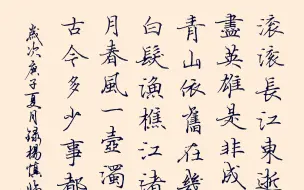 滾滾長江東逝
盡英雄是非成
青山依舊在幾
白髮漁樵江渚
月春風一壺濁
古今多少事都
歲次庚子夏月録楊慎臨